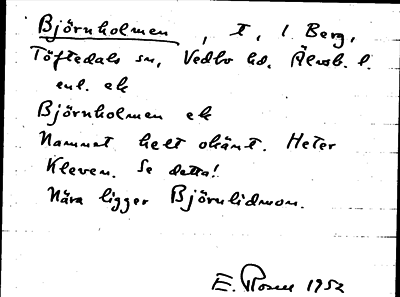 Björnholmen, t, l. Berg,
Töftedals sn, Vedbo hd, Älvsb. l.
enl. ek
Björnholmen ek
Namnet helt okänt. Heter
Kleven. Se detta!
Nära ligger Björnlidmon.
E. 1952